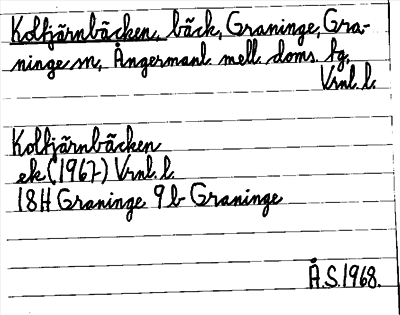 Koltjärnbäcken, bäck, Graninge, Gra-
ninge sn, Ångermanl. mell. doms. tg.
Vrnl. l.
Koltjärnbäcken
ek (1967) Vrnl. l.
18H Graninge 9b Graninge
Å.S. 1968.